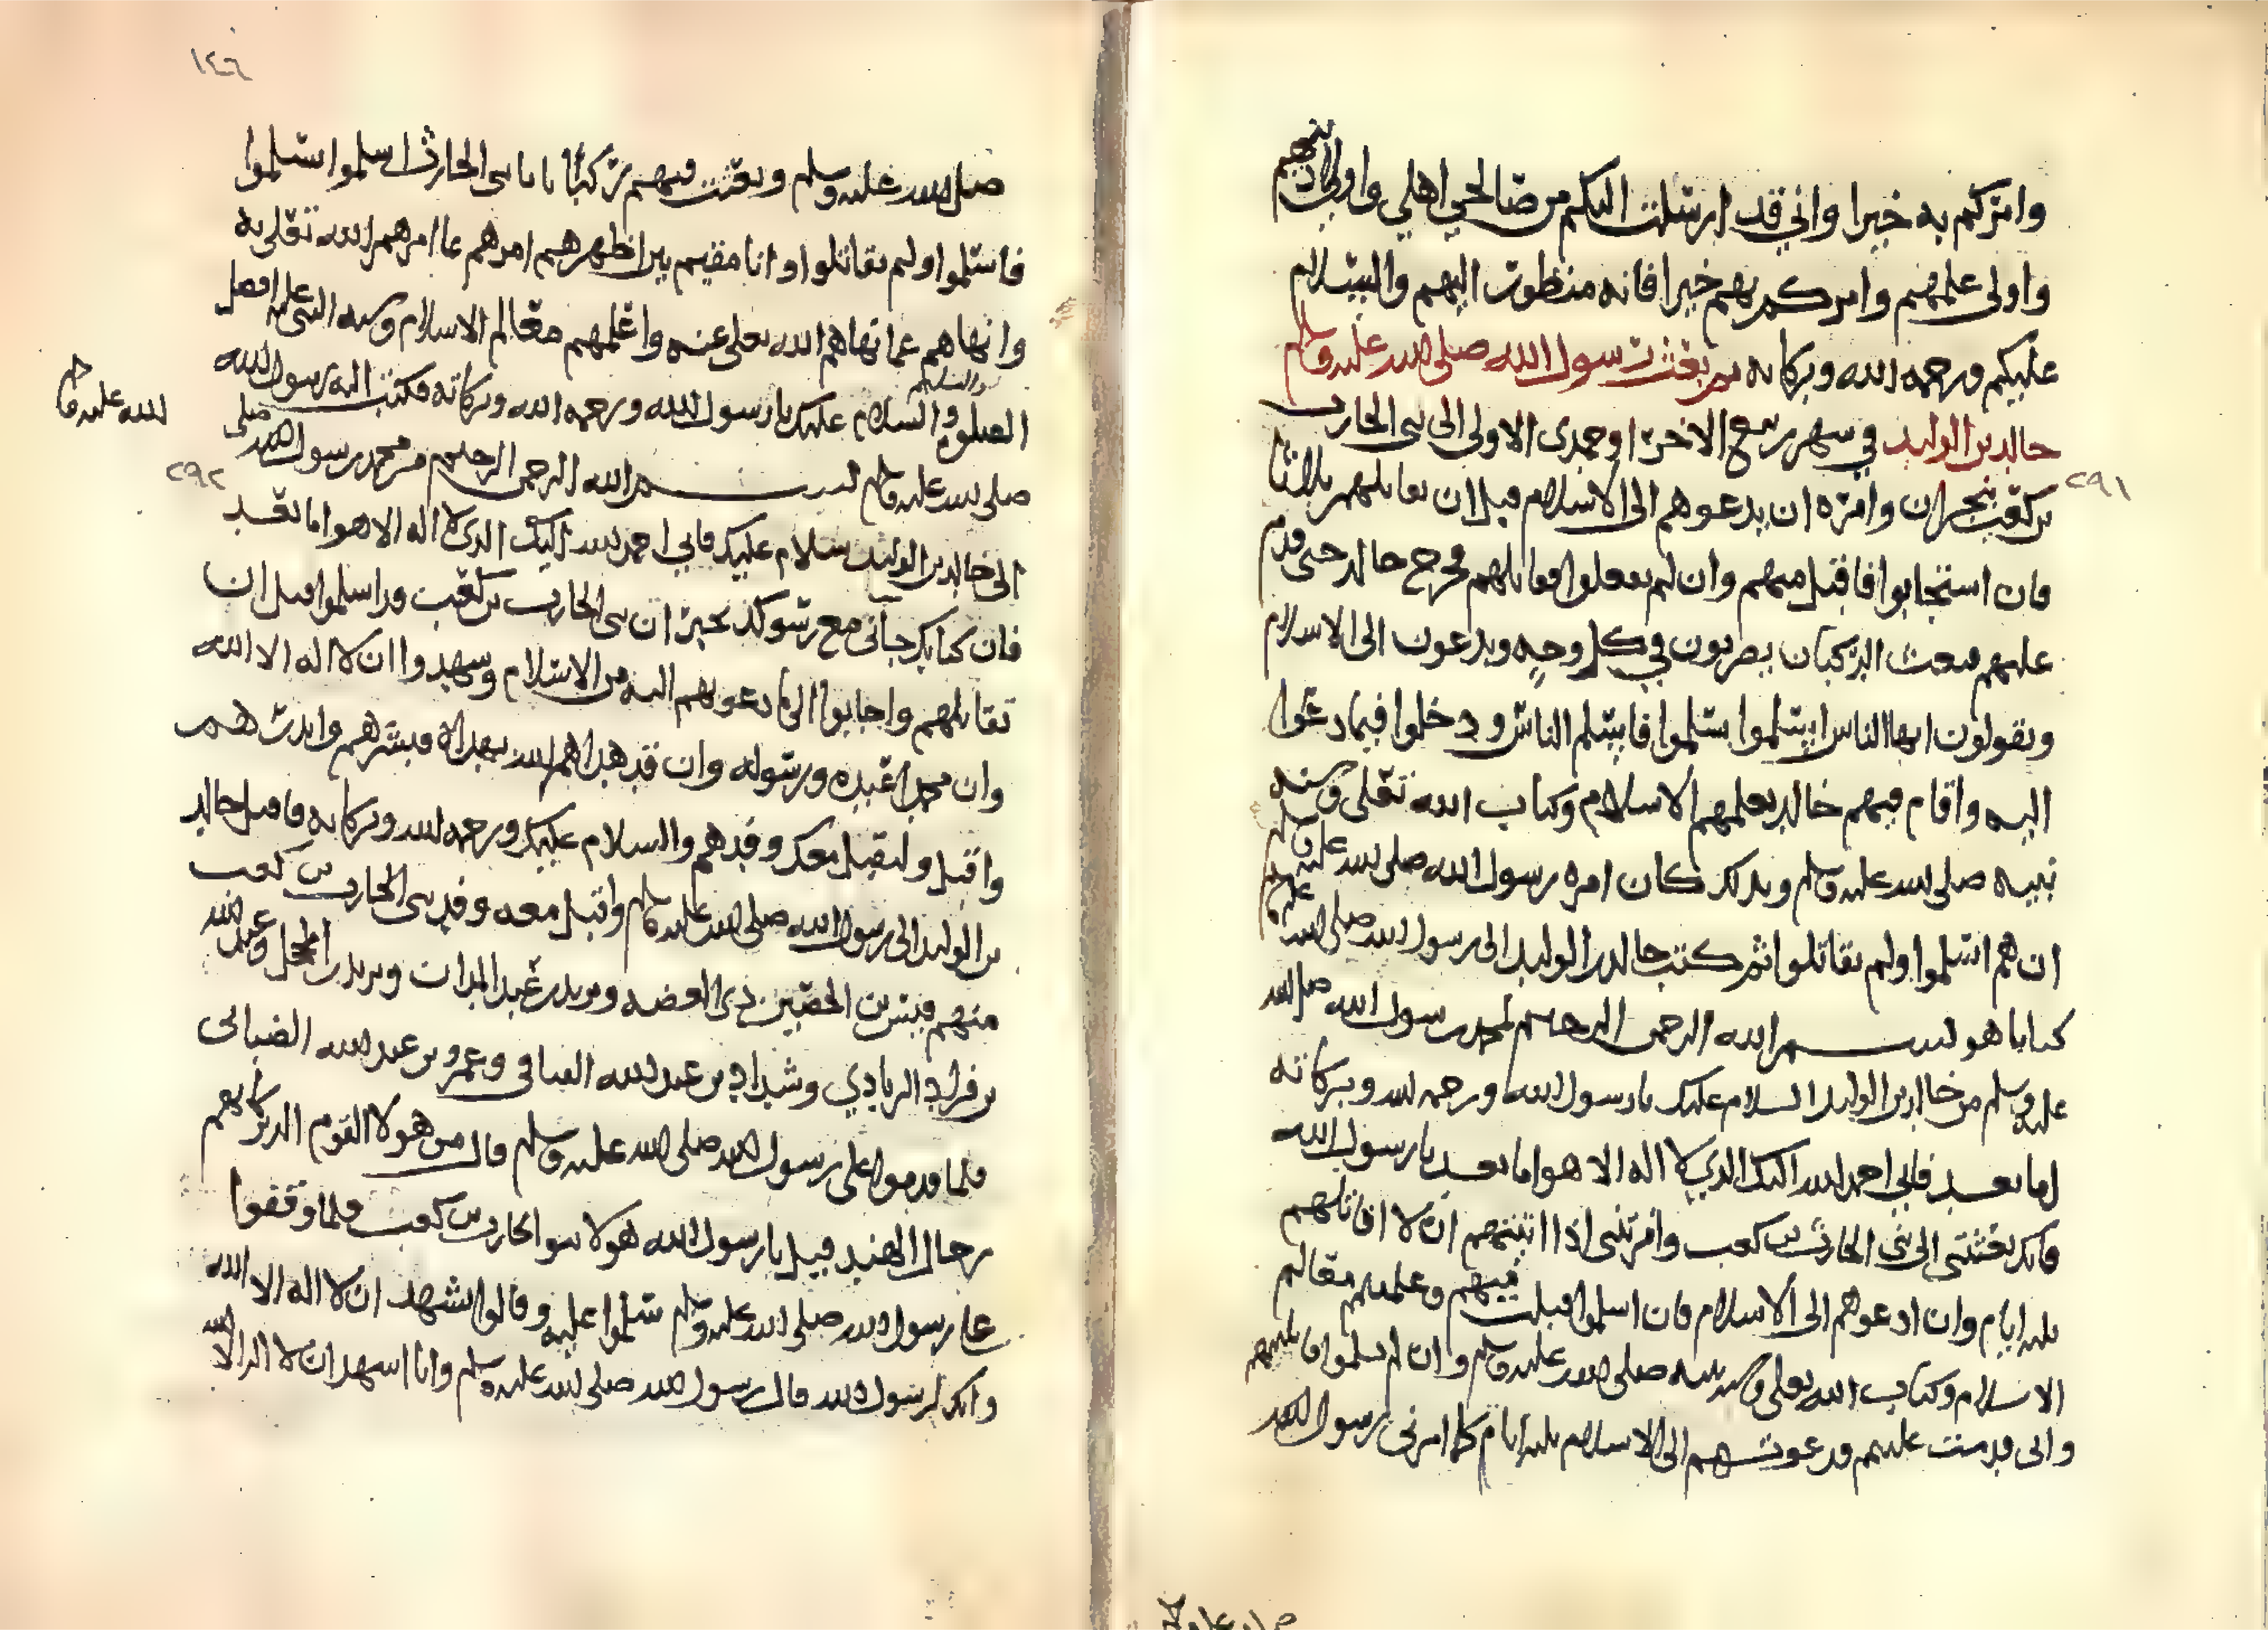 وامركم به خيرا واني قد ارسلت اليكم من صالحي اهلي واولي دينهم
واولي علمهم وامركم بهم خيرا فانه منظور اليهم والسلام
عليكم ورحمه الله وبركاته ثم بعث رسول الله صلى الله عليه وسلم
خالد بن الوليد في شهر ربيع الاخر او جمدى الاولى الى بني الحارث
بن كعب بنجران وامره ان يدعوهم الى الاسلام قبل ان يقاتلهم ثلاثا
فان استجابوا فاقبل منهم وان لم يفعلوا فقاتلهم فخرج خالد حتى قدم
عليهم فبعث الركبان يضربون في كل وجه ويدعون الى الاسلام
ويقولون ايها الناس اسلموا تسلموا فاسلم الناس ودخلوا فيما دعوا
اليه واقام فيهم خالد يعلمهم الاسلام وكتاب الله تعلى وسنه
نبيه صلى الله عليه وسلم وبذلك كان امره رسول الله صلى الله عليه وسلم
ان هم اسلموا ولم يقاتلوا ثم كتب خالد بن الوليد الى رسول الله صلى الله عليه وسلم
كتابا هو بسم الله الرحمن الرحيم لمحمد رسول الله صلى الله
عليه وسلم من خالد بن الوليد السلام عليك يا رسول الله ورحمه الله وبركاته
اما بعد فاني احمد الله اليك الذي لا اله الا هو اما بعد يا رسول الله
فانك بعثتني الى بني الحارث بن كعب وامرتني اذا اتيتهم ان لا اقاتلهم
ثلثه ايام وان ادعوهم الى الاسلام فان اسلموا قبلت منهم وعلمتهم معالم
الاسلام وكتاب الله تعلى وسنه نبيه صلى الله عليه وسلم وان لم يسلموا قاتلتهم
واني قدمت عليهم فدعوتهم الى الاسلام ثلثه ايام كما امرني رسول الله
٢٩١
١٤٦
صلى الله عليه وسلم وبعثت فيهم ركبانا يا بني الحارث اسلموا تسلموا
فاسلموا ولم يقاتلوا وانا مقيم بين اظهرهم امرهم بما امرهم الله تعلى به
وانهاهم عما نهاهم الله تعلى عنه واعلمهم معالم الاسلام وسنه النبي عليه افضل
الصلوه والسلام والسلام عليك يا رسول الله ورحمه الله وبركاته فكتب اليه رسول الله
صلى الله عليه وسلم بسم الله الرحمن الرحيم من محمد رسول الله صلى
الله عليه وسلم
٢٩٢
الى خالد بن الوليد سلام عليك فاني احمد الله اليك الذي لا اله الا هو اما بعد
فان كتابك جاني مع رسولك بخبر ان بني الحارث بن كعب قد اسلموا قبل ان
تقاتلهم واجابوا الى ما دعوتهم اليه من الاسلام وشهدوا ان لا اله الا الله
وان محمدا عبده ورسوله وان قد هداهم الله بهداه فبشرهم وانذرهم
واقبل وليقبل معك وفدهم والسلام عليك ورحمه الله وبركاته فاقبل خالد
بن الوليد الى رسول الله صلى الله عليه وسلم واقبل معه وفد بني الحارث بن كعب
منهم قيس بن الحصين ذي الغصه ويزيد بن عبد المدان ويزيد بن المحجل وعبد الله
بن قراد الزيادي وشداد بن عبد الله القناني وعمرو بن عبد الله الضبابي
فلما قدموا على رسول الله صلى الله عليه وسلم قال من هولا القوم الذين كانهم
رجال الهند قيل يا رسول الله هولا بنوا الحارث بن كعب فلما وقفوا
على رسول الله صلى الله عليه وسلم سلموا عليه وقالوا نشهد ان لا اله الا الله
وانك لرسول الله قال رسول الله صلى الله عليه وسلم وانا اشهد ان لا اله الا الله